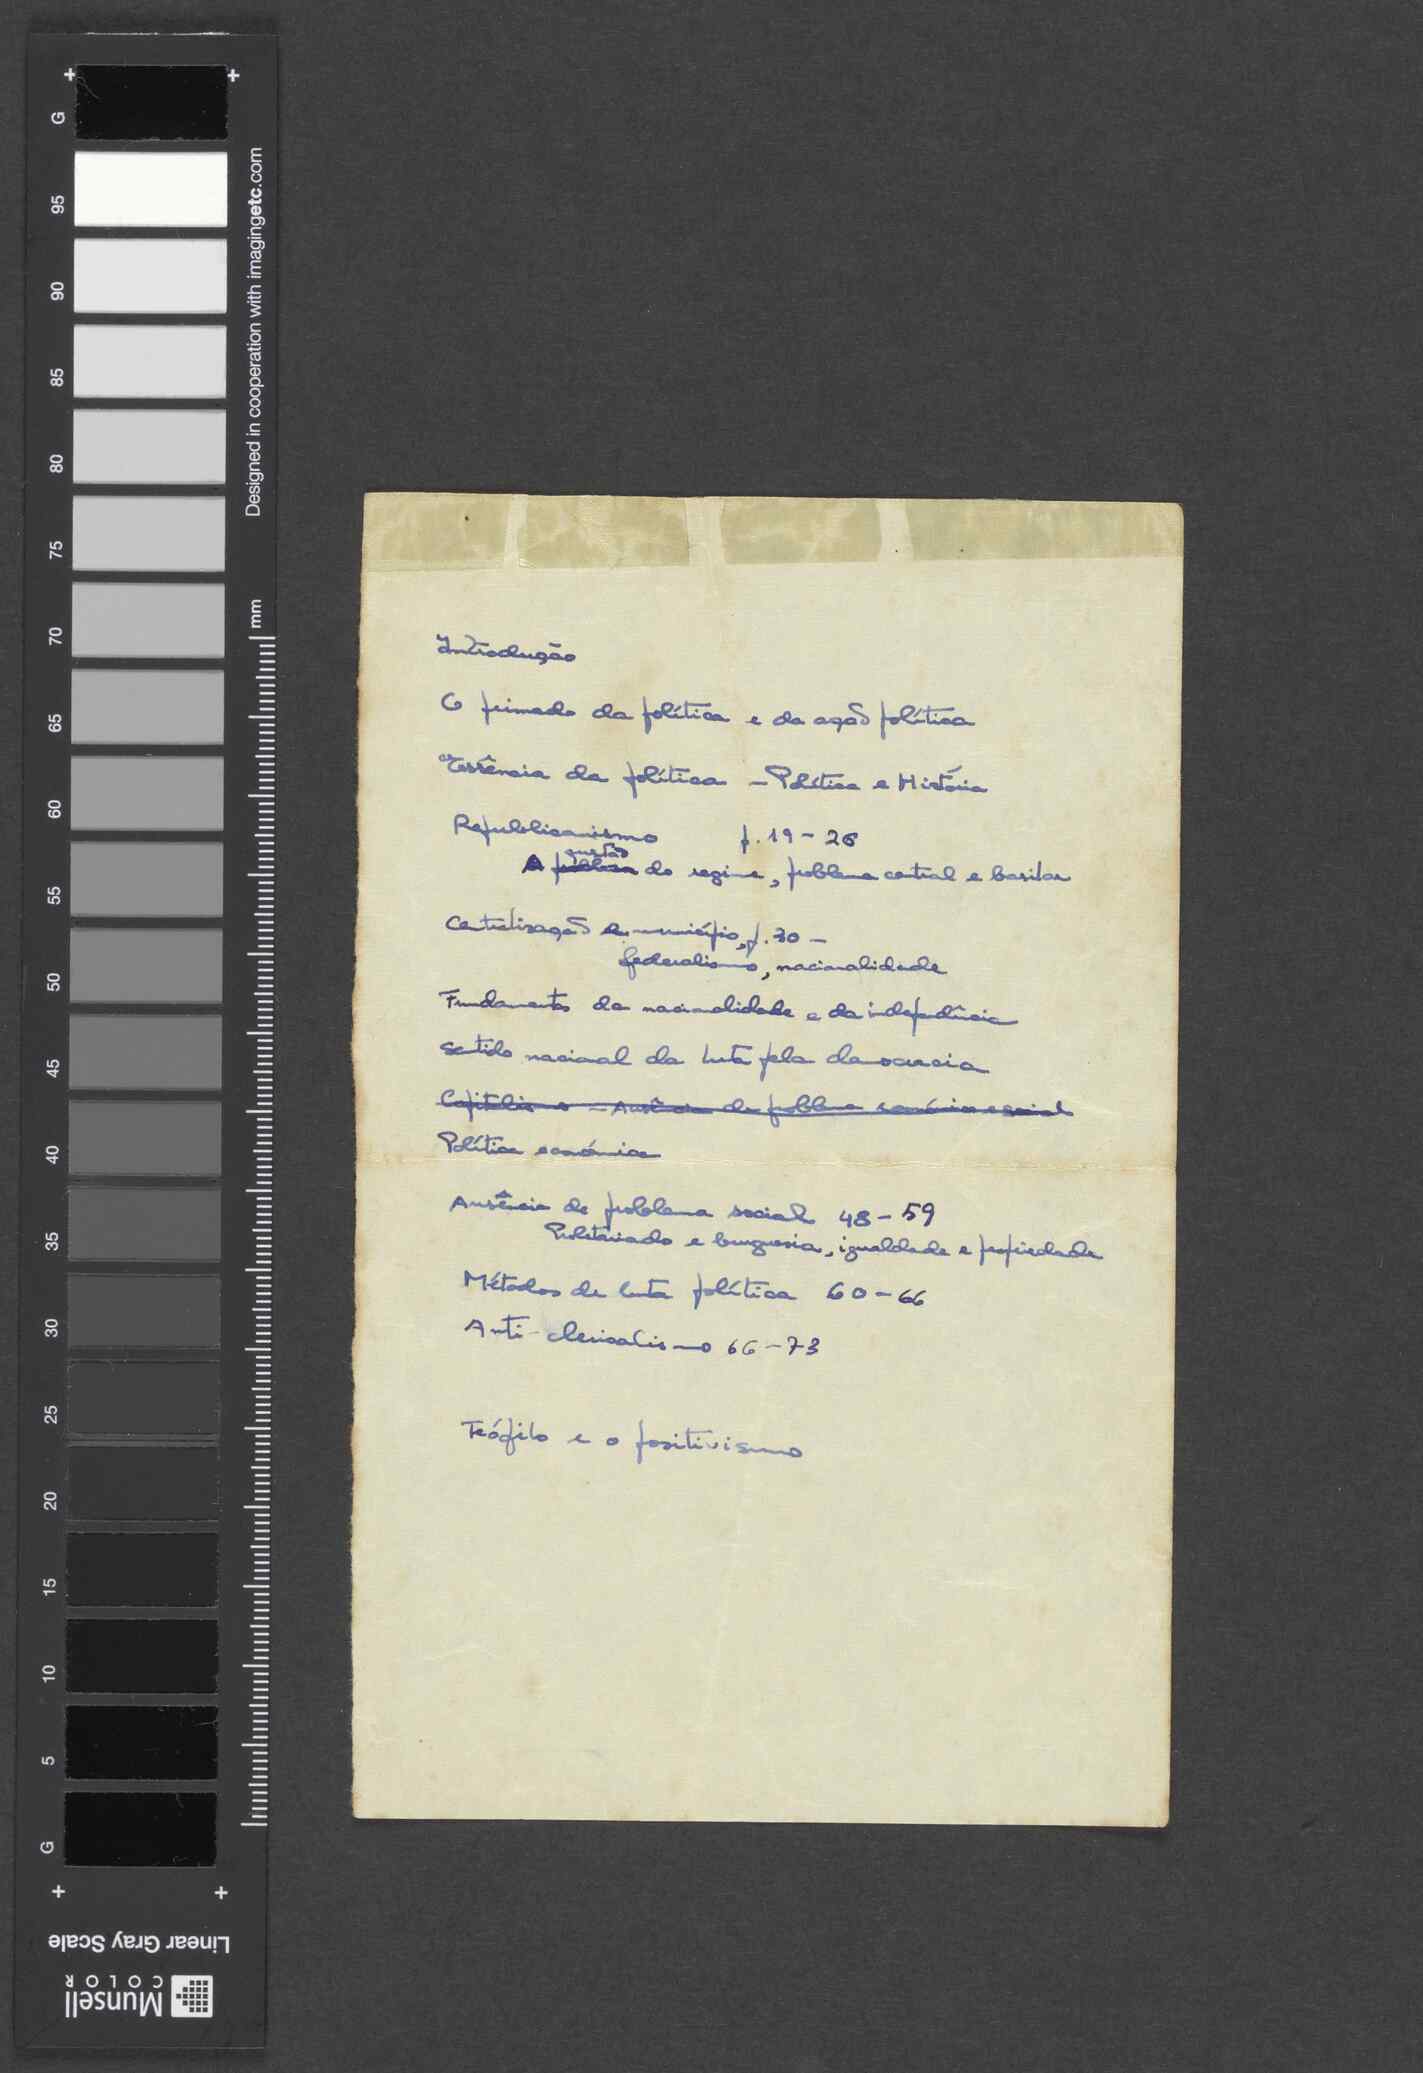 Introdução
O primado da política e da ação política
Essência da política – Política e História
Republicanismo p. 19 – 26
questão
A problema do regime, problema central e basilar
Centralização e município, p. 30 –
federalismo, nacionalidade
Fundamentos da nacionalidade e da independência
Sentido nacional da luta pela democracia
Capitalismo – Ausência do problema económico e social
Política económica
Ausência de problema social 48 – 59
Proletariado e burguesia, igualdade e propriedade
Métodos de luta política 60 – 66
Anti-clericalismo 66 – 73
Teófilo e o positivismo
G
95
90
85
80
75
70
65
60
55
50
45
40
35
30
25
20
15
10
5
G
Designed in cooperation with imagingetc.com
mm
Linear Gray Scale
Munsell
COLOR